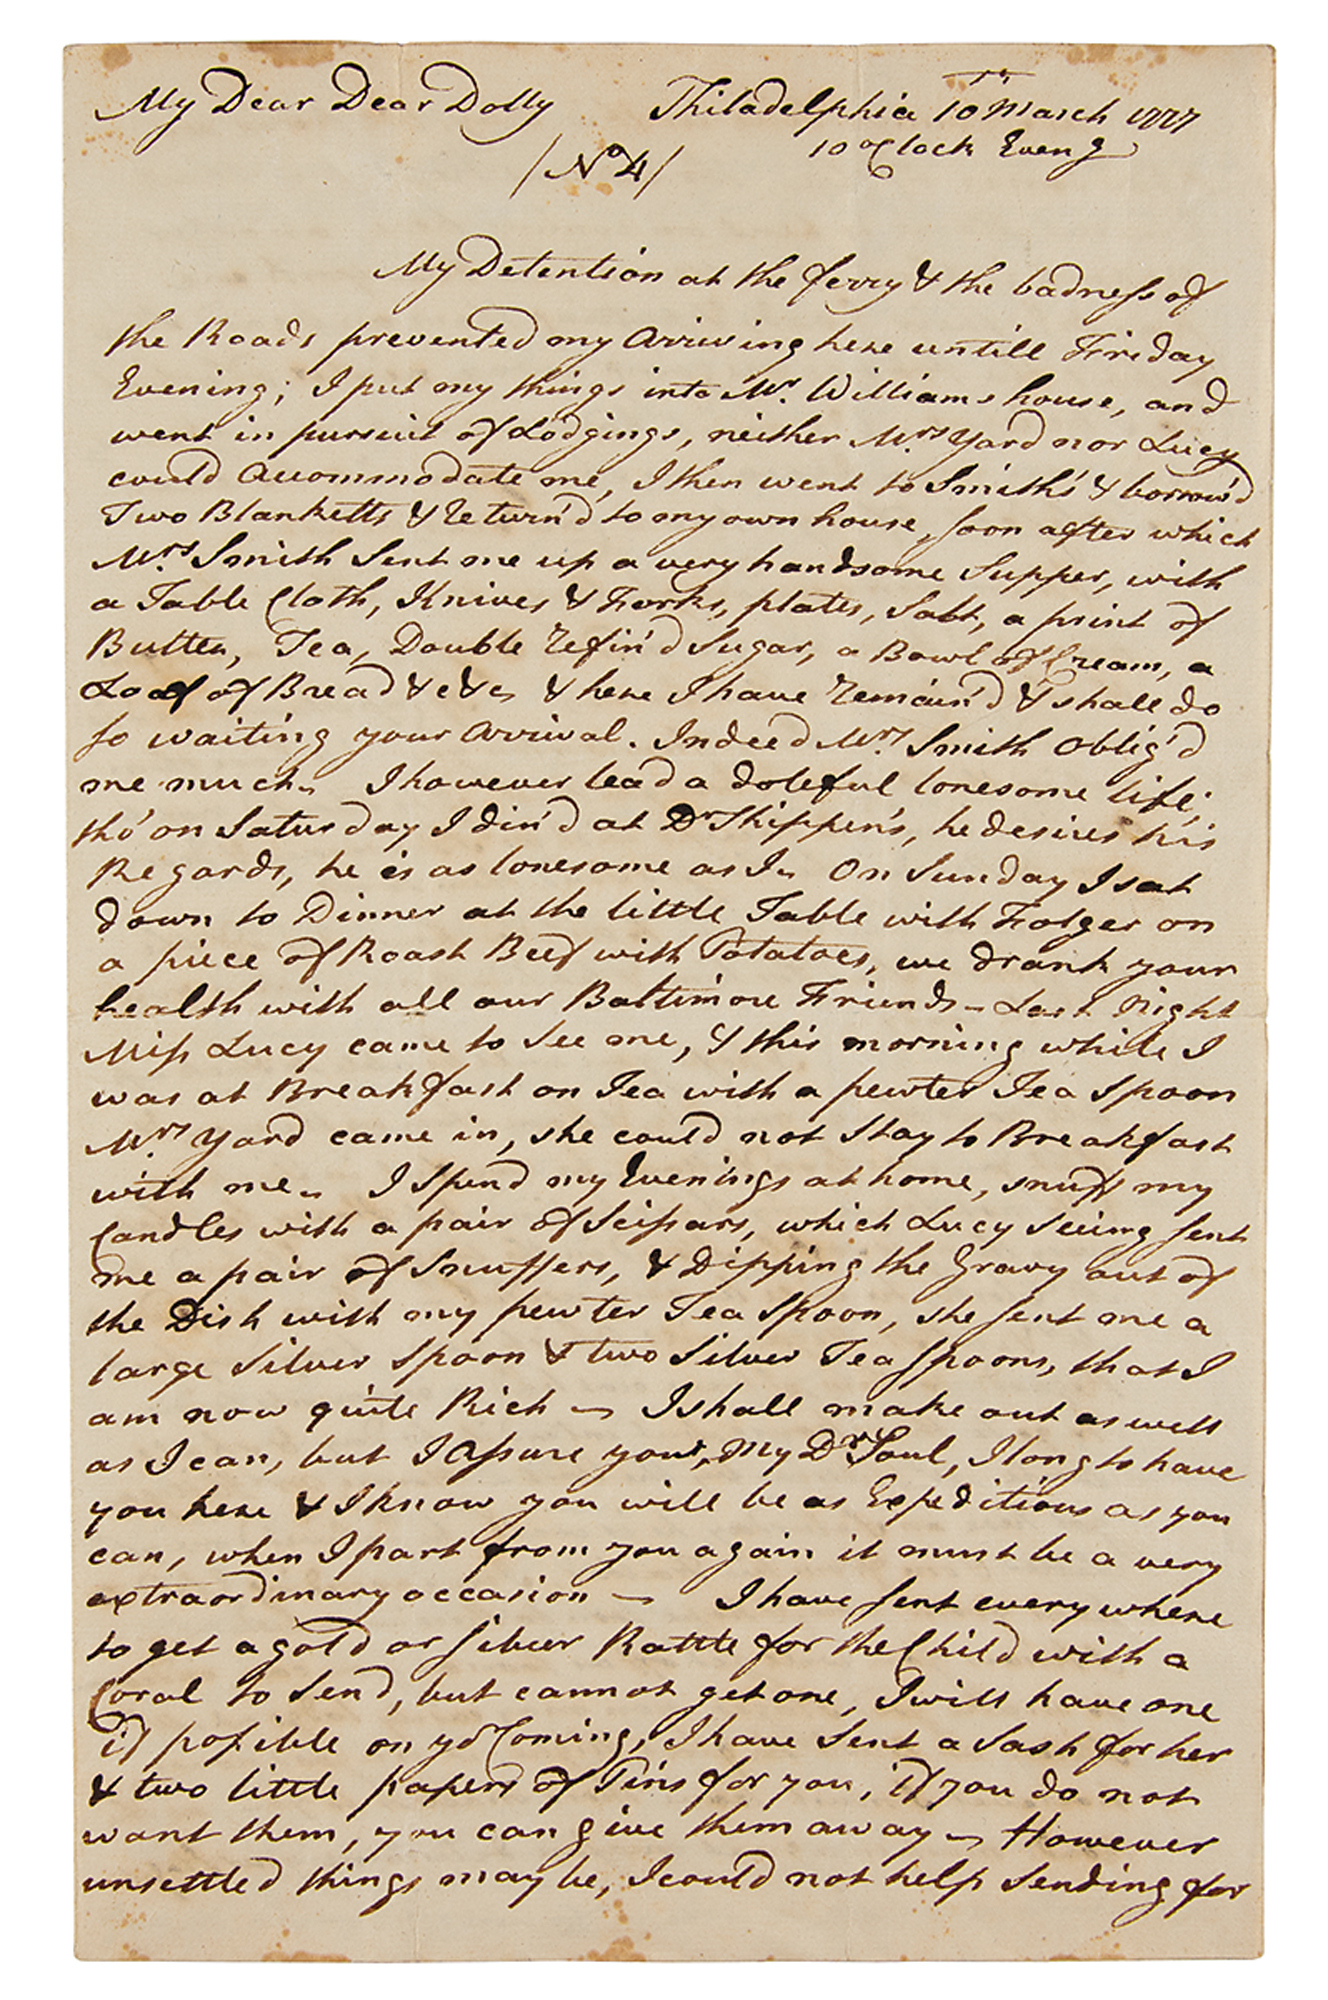 My Dear Dear Dolly Philadelphia 10th March 1777
/ No 4 / 10 o'Clock Eveng
My Detention at the ferry & the badness of
the Roads prevented my Arriving here untill Friday
Evening; I put my things into Mr. Williams house, and
went in pursuit of Lodgings, neither Mrs. Yard nor Lucy
could Accommodate me, I then went to Smith's & borrow'd
Two Blanketts & Return'd to my own house, soon after which
Mrs. Smith Sent me up a very handsome Supper, with
a Table Cloth, Knives & Forks, plates, Salt, a print of
Butter, Tea, Double refin'd Sugar, a Bowl of Cream, a
Loaf of Bread &c &c, & here I have remain'd & shall do
so waiting your Arrival. Indeed Mrs. Smith Oblig'd
me much. I however lead a doleful lonesome life,
tho' on Saturday I din'd at Dr Shippen's, he desires his
Regards, he is as lonesome as I. On Sunday I sat
down to Dinner at the little Table with Folger on
a piece of Roast Beef with Potatoes, we drank your
health with all our Baltimore Friends – Last Night
Miss Lucy came to See me, & this morning while I
was at Breakfast on Tea with a pewter Tea Spoon
Mrs. Yard came in, she could not Stay to Breakfast
with me. I Spend my Evenings at home, snuff my
Candles with a pair of Scissars, which Lucy seeing sent
me a pair of Snuffers, & Dipping the Gravy out of
the Dish with my pewter Tea Spoon, she sent me a
large Silver Spoon & two Silver Tea spoons, that I
am now quite Rich – I shall make out as well
as I can, but I Assure you, My Dr Soul, I long to have
you here & I know you will be as Expeditious as you
can, when I part from you again it must be a very
extraordinary occasion – I have sent everywhere
to get a gold or silver Rattle for the Child with a
Coral to Send, but cannot get one, I will have one
if possible on yor Coming, I have Sent a Sash for her
& two little papers of Pins for you, if you do not
want them, you can give them away – However
unsettled things may be, I could not help Sending for